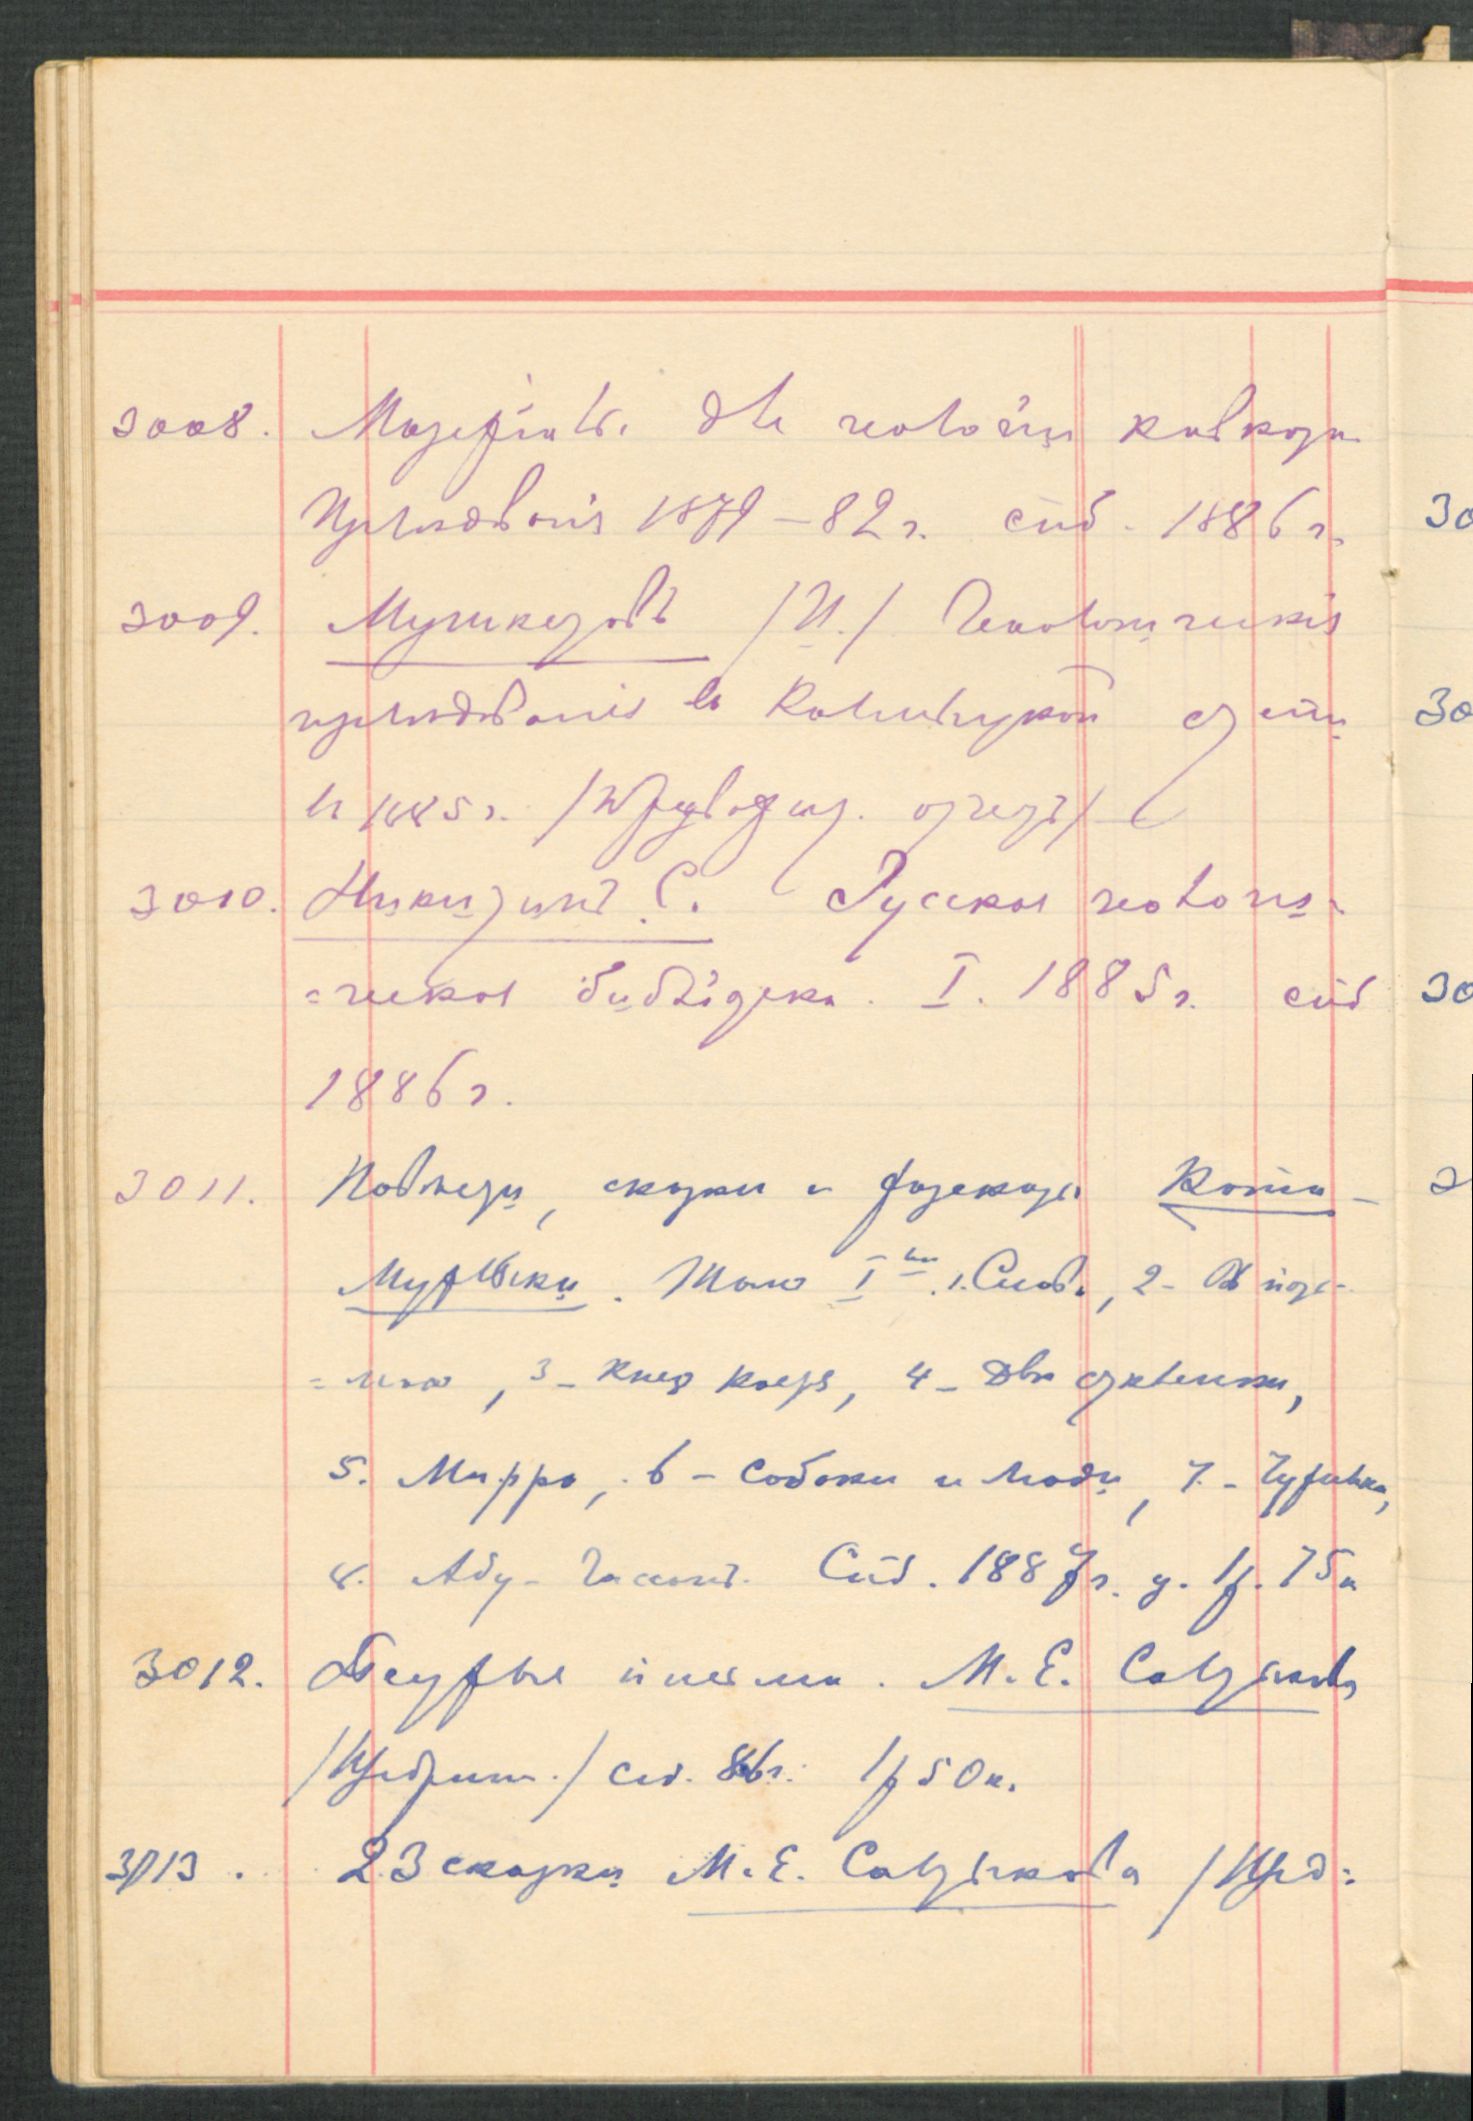 3008. Матеріалы для геологіи Кавказа
Изслѣдованія 1879–82 г. Спб. 1886 г.
3009. Мушкетовъ /И./ Геологическія
изслѣдованія въ Калмыцкой степи
въ 1885 г. /Предварит. отчетъ/
3010. Никитинъ С. Русская геологи-
=ческая библіотека. I. 1885 г. Спб
1886 г.
3011. Повѣсти, сказки и разсказы Кота-
Мурлыки. Томъ I. 1.
3, 4-Двѣ
5. Мирра, 6-Собаки и люди, 7-Чурилка,
8. Абу-Гассанъ. Спб. 1887 г. ц. 1р. 75к
3012. Пестрыя письма. М.Е. Салтыкова
/Щедрин./ Спб. 86 г. 1р 50к.
3013. 23 сказки М.Е. Салтыкова /Щед=
30
30
30